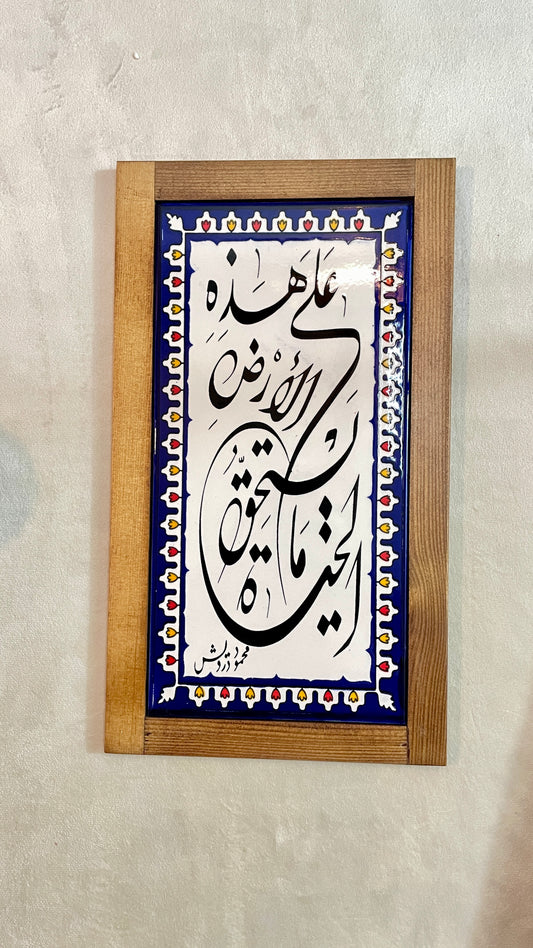 عَلَى هَذِهِ
الأَرْضِ
مَا يَسْتَحِقُّ
الحَيَاة
محمود درويش